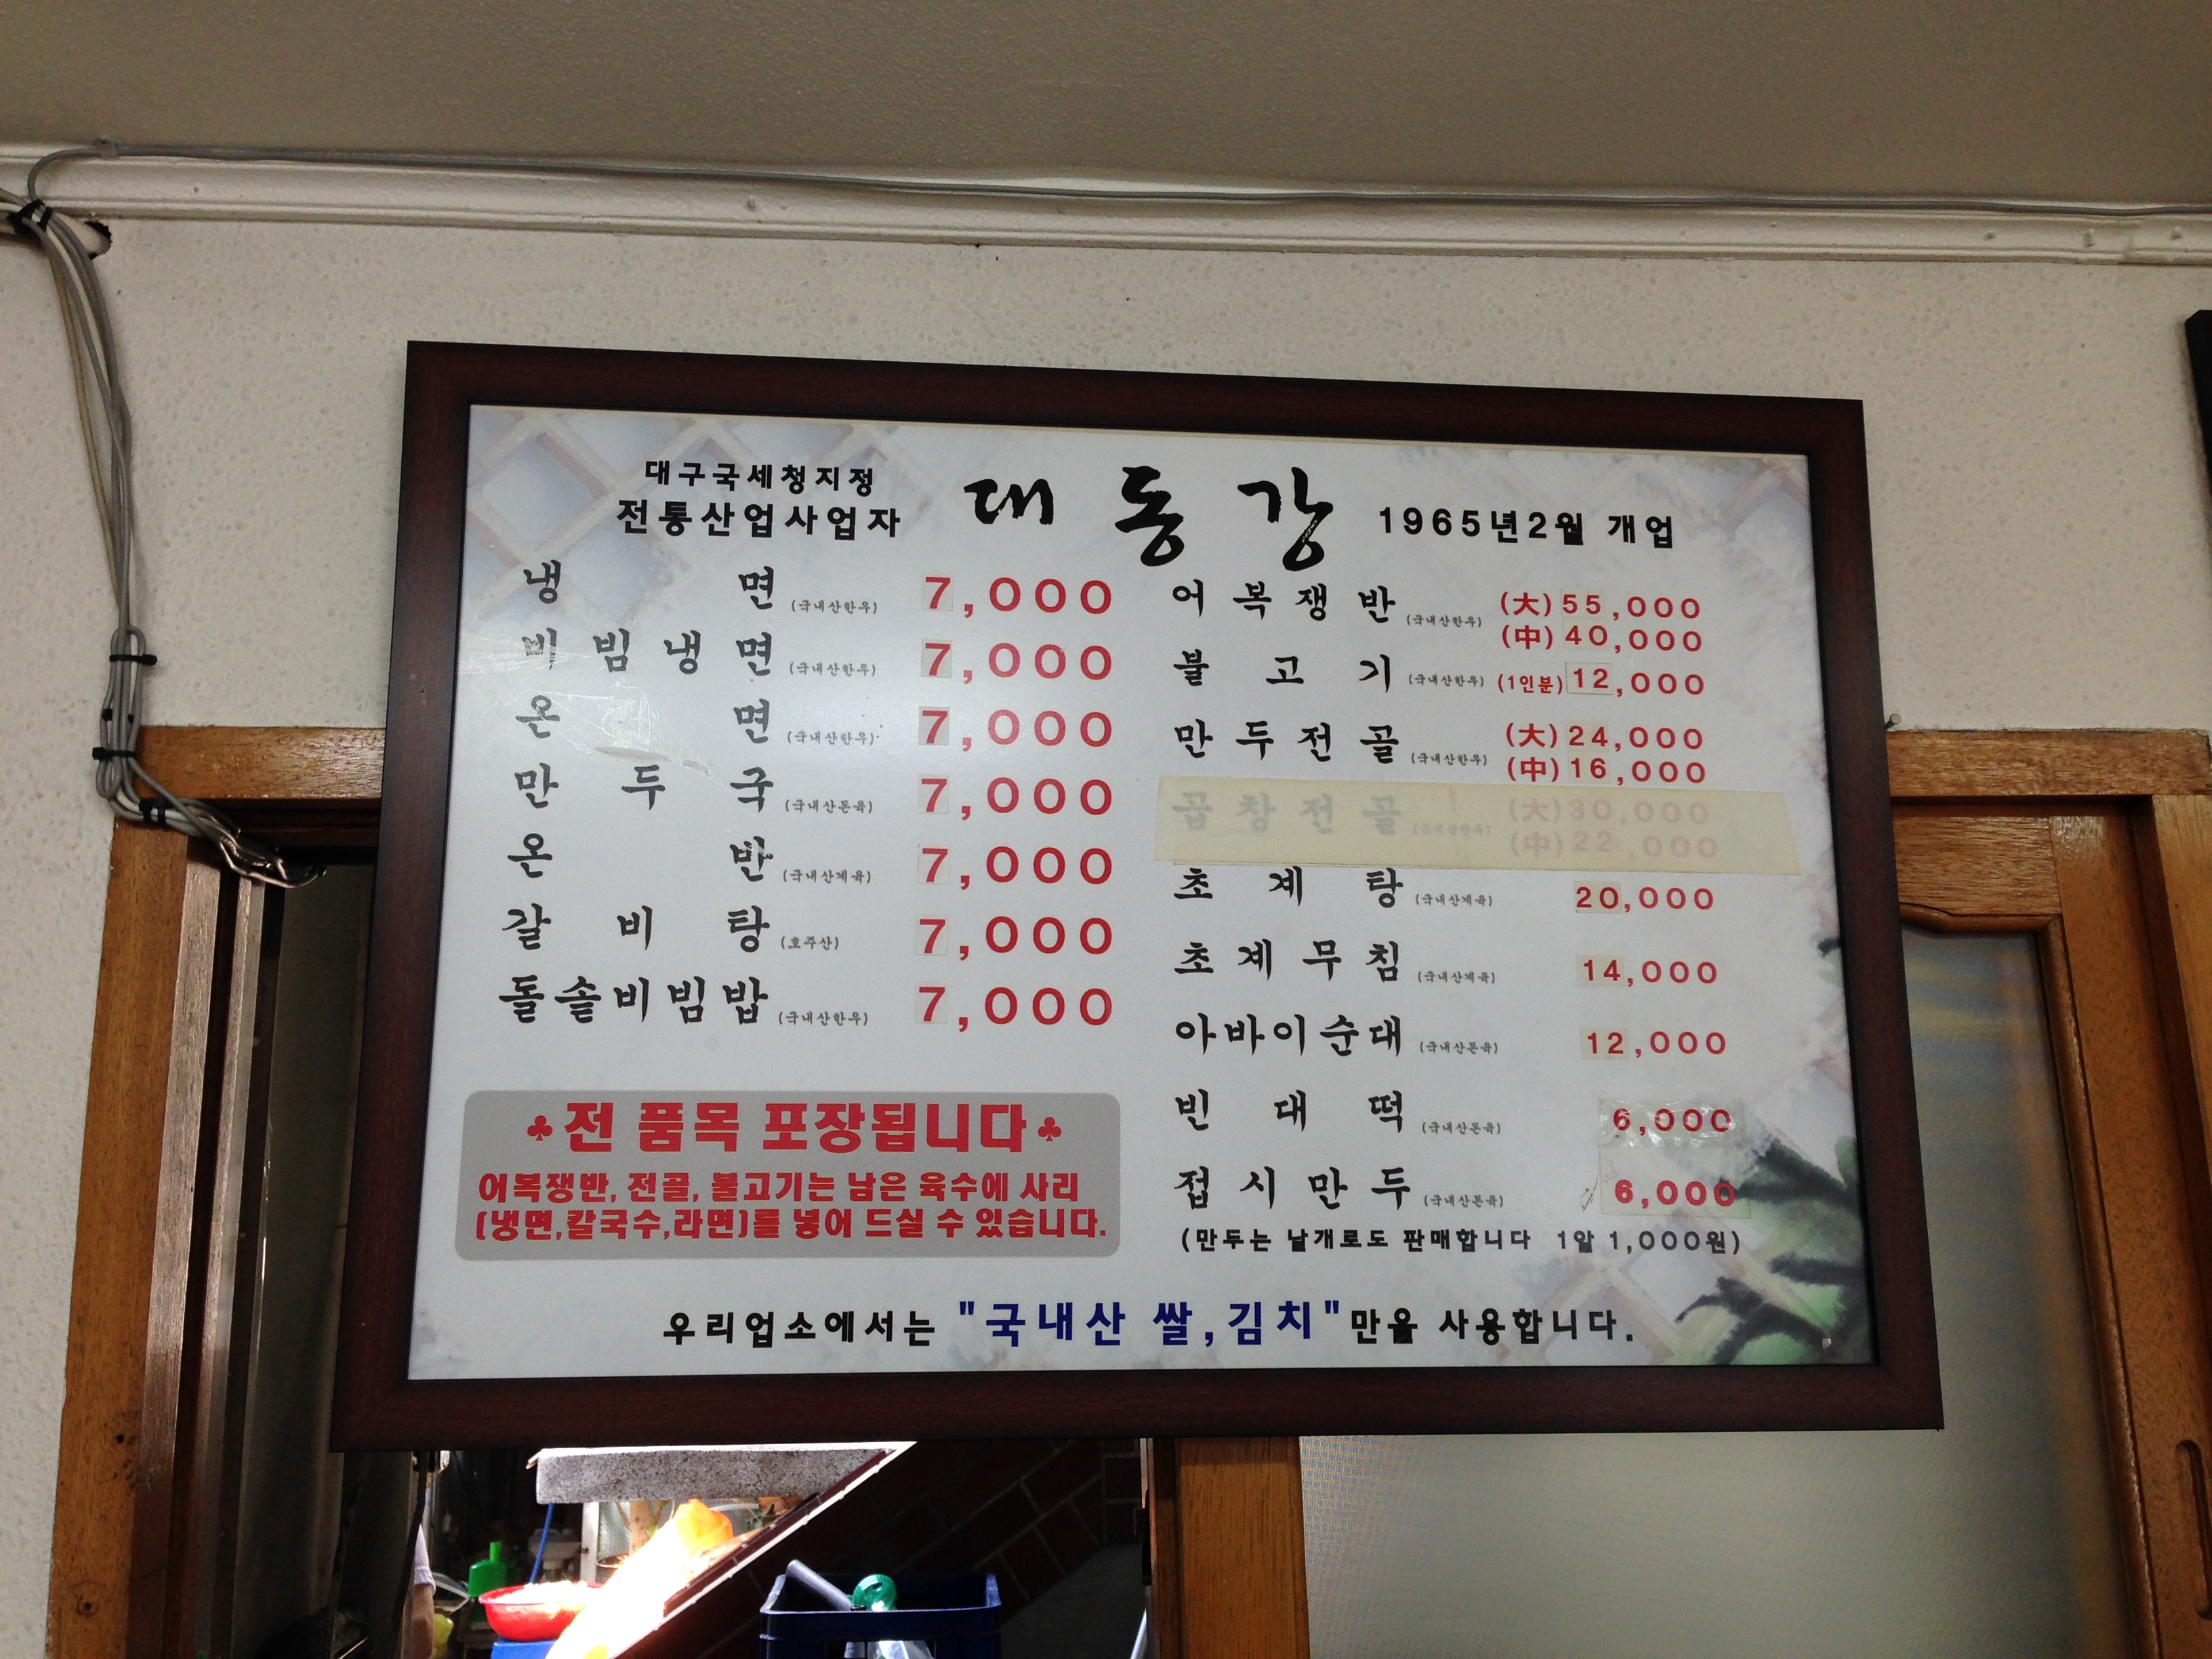 대구국세청지정
전통산업사업자
대동강
1965년2월 개업
냉면 (국내산한우) 7,000
비빔냉면 (국내산한우) 7,000
온면 (국내산한우) 7,000
만두국 (국내산돈육) 7,000
온반 (국내산계육) 7,000
갈비탕 (호주산) 7,000
돌솥비빔밥 (국내산한우) 7,000
♣전 품목 포장됩니다♣
어복쟁반, 전골, 불고기는 남은 육수에 사리
(냉면,칼국수,라면)를 넣어 드실 수 있습니다.
어복쟁반 (국내산한우) (大)55,000
(中)40,000
불고기 (국내산한우) (1인분)12,000
만두전골 (국내산한우) (大)24,000
(中)16,000
곱창전골 (국내산한우) (大)30,000
(中)22,000
초계탕 (국내산계육) 20,000
초계무침 (국내산계육) 14,000
아바이순대 (국내산돈육) 12,000
빈대떡 (국내산돈육) 6,000
접시만두 (국내산돈육) 6,000
(만두는 낱개로도 판매합니다 1알 1,000원)
우리업소에서는 "국내산 쌀,김치"만을 사용합니다.